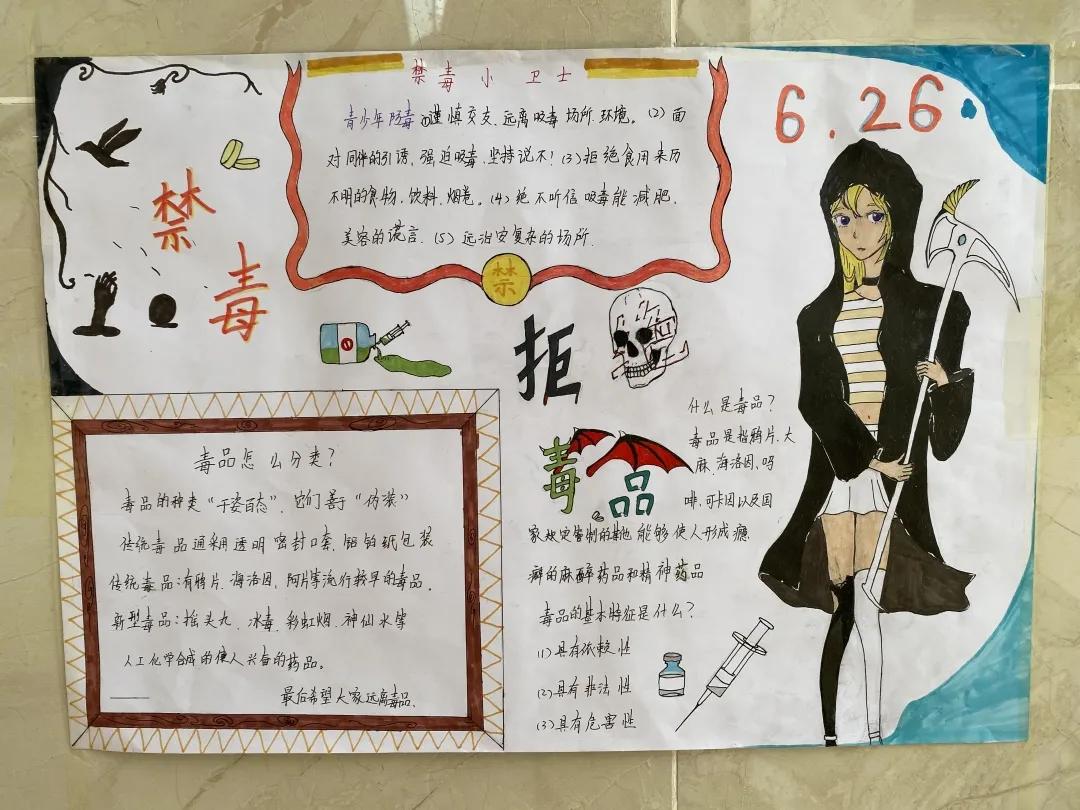 禁毒小卫士
6.26
青少年防毒①谨慎交友、远离吸毒场所、环境。(2)面
对同伴的引诱，强迫吸毒、坚持说不！(3)拒绝食用来历
不明的食物、饮料、烟卷。(4)绝不听信吸毒能减肥、
美容的谎言、(5)远治安复杂的场所.
禁
禁
毒
拒
毒品
毒品怎么分类？
毒品的种类“千姿百态”、它们善于“伪装”
传统毒品通采用透明密封口袋、铝铂纸包装
传统毒品：有鸦片、海洛因、阿片等流行较早的毒品。
新型毒品：摇头丸、冰毒、彩虹烟、神仙水等
人工化学合成的使人兴奋的药品。
最后希望大家远离毒品、
什么是毒品？
毒品是指鸦片、大
麻、海洛因、吗
啡、可卡因以及国
家规定管制的其他能够使人形成瘾
癖的麻醉药品和精神药品
毒品的基本特征是什么？
(1)具有依赖性
(2)具有非法性
(3)具有危害性